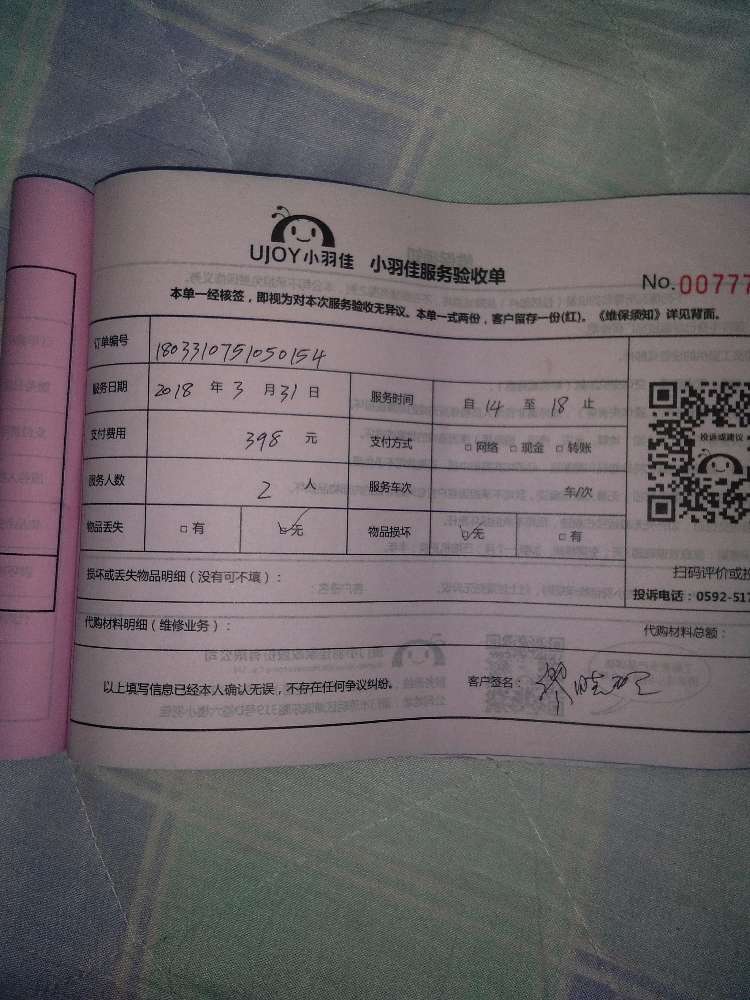 UJOY小羽佳 小羽佳服务验收单
No. 00777
本单一经核签，即视为对本次服务验收无异议。本单一式两份，客户留存一份(红)。《维保须知》详见背面。
订单编号 1803310751050154
服务日期 2018 年 3 月 31 日 服务时间 自 14 至 18 止
支付费用 398 元 支付方式 □ 网络 □ 现金 □ 转账
投诉或建议
服务人数 2 人 服务车次 车/次
物品丢失 □ 有 □ 无 物品损坏 □ 无 □ 有
扫码评价或投
损坏或丢失物品明细（没有可不填）：
投诉电话：0592-517
代购材料明细（维修业务）：
代购材料总额：
以上填写信息已经本人确认无误，不存在任何争议纠纷。 客户签名：